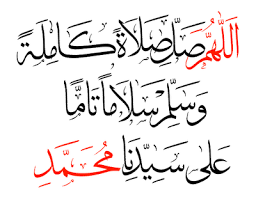 اَللّٰهُمَّ صَلِّ صَلَاةً كَامِلَةً
وَسَلِّمْ سَلَامًا تَامًّا
عَلَى سَيِّدِنَا مُحَمَّدٍ